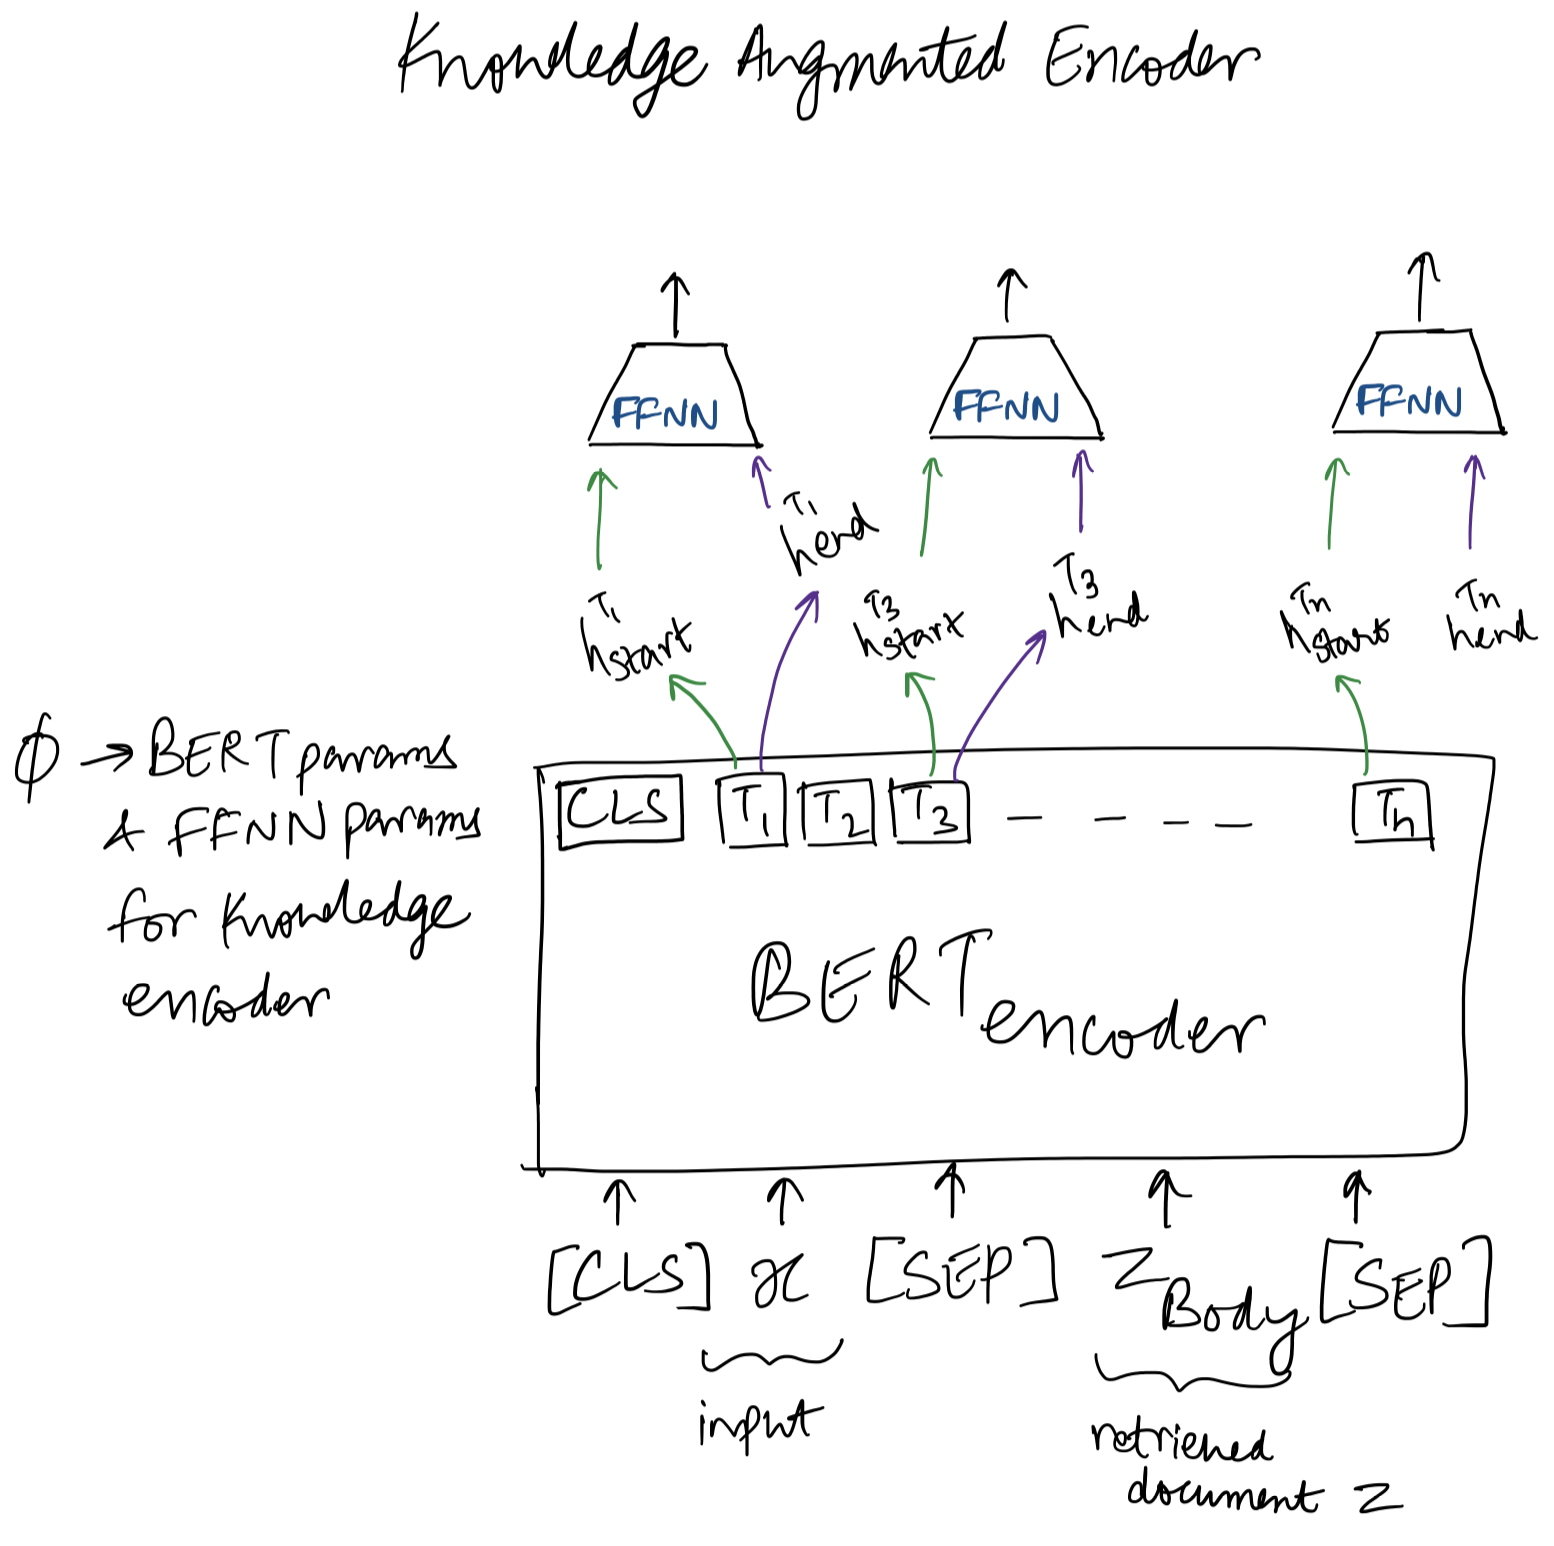 Knowledge Augmented Encoder
FFNN
FFNN
FFNN
T1
hend
T1
hstart
T3
hstart
T3
hend
Tn
hstart
Tn
hend
ϕ → BERT params
& FFNN params
for Knowledge
encoder
CLS T1 T2 T3 – – – – Tn
BERT encoder
[CLS] x [SEP] Z Body [SEP]
input
retrieved
document Z